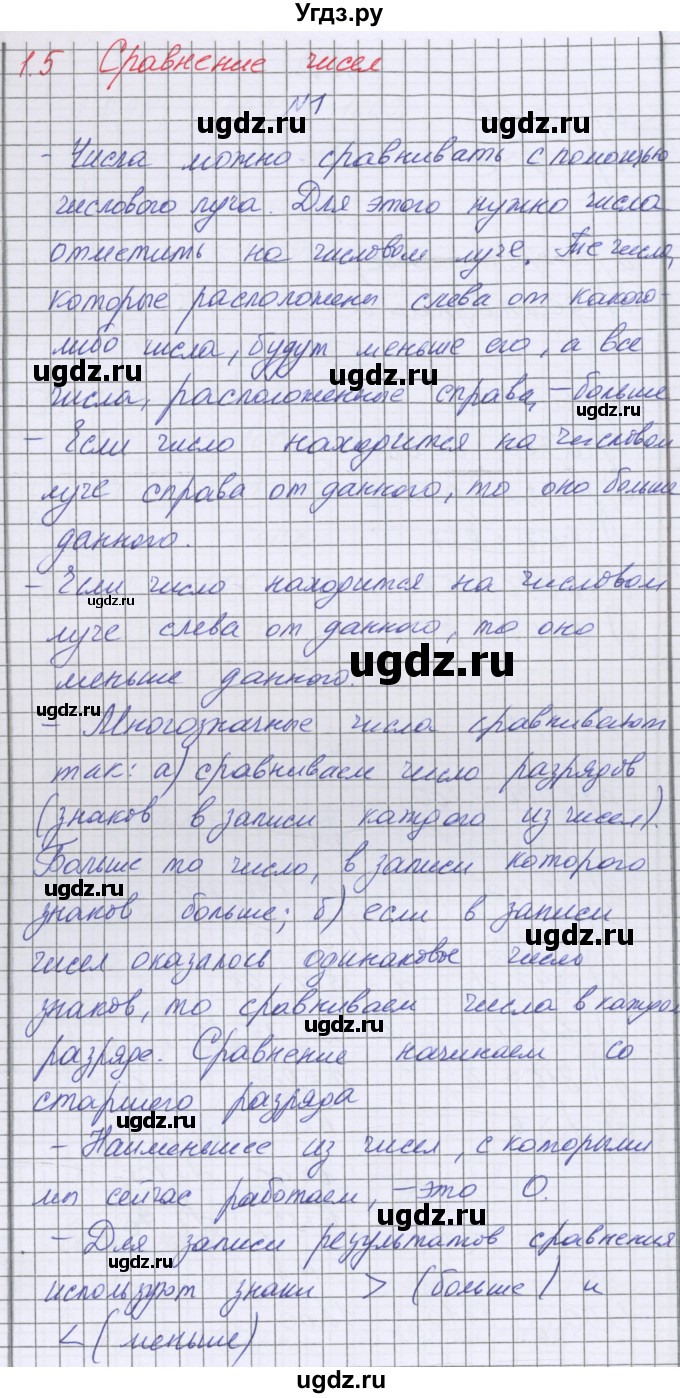 Угдз.ру
1.5 Сравнение чисел
№1
ugdz.ru ugdz.ru
- Числа можно сравнивать с помощью
числового луча. Для этого нужно числа
отметить на числовом луче. Те числа,
которые расположены слева от какого-
либо числа, будут меньше его, а все
ugdz.ru ugdz.ru
числа, расположенные справа, - больше
ugdz.ru
- Если число находится на числовом
луче справа от данного, то оно больше
ugdz.ru
данного.
- Если число находится на числовом
ugdz.ru
луче слева от данного, то оно
ugdz.ru
меньше данного.
ugdz.ru
- Многозначные числа сравнивают
так: а) сравниваем число разрядов
(знаков в записи каждого из чисел).
ugdz.ru
Больше то число, в записи которого
ugdz.ru
знаков больше; б) если в записи
ugdz.ru
чисел оказалось одинаковое число
знаков, то сравниваем числа в каждом
ugdz.ru
разряде. Сравнение начинаем со
старшего разряда
ugdz.ru
- Наименьшее из чисел, с которыми
мы сейчас работаем, - это 0.
ugdz.ru
- Для записи результатов сравнения
ugdz.ru
используют знаки > (больше) и
< (меньше)
ugdz.ru